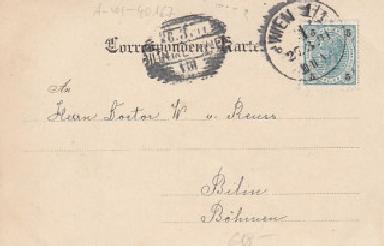 A-W1-40167
Correspondenz-Karte.
WIEN
5
5
An
Herrn Doctor W v Reuss
Bilin
Böhmen